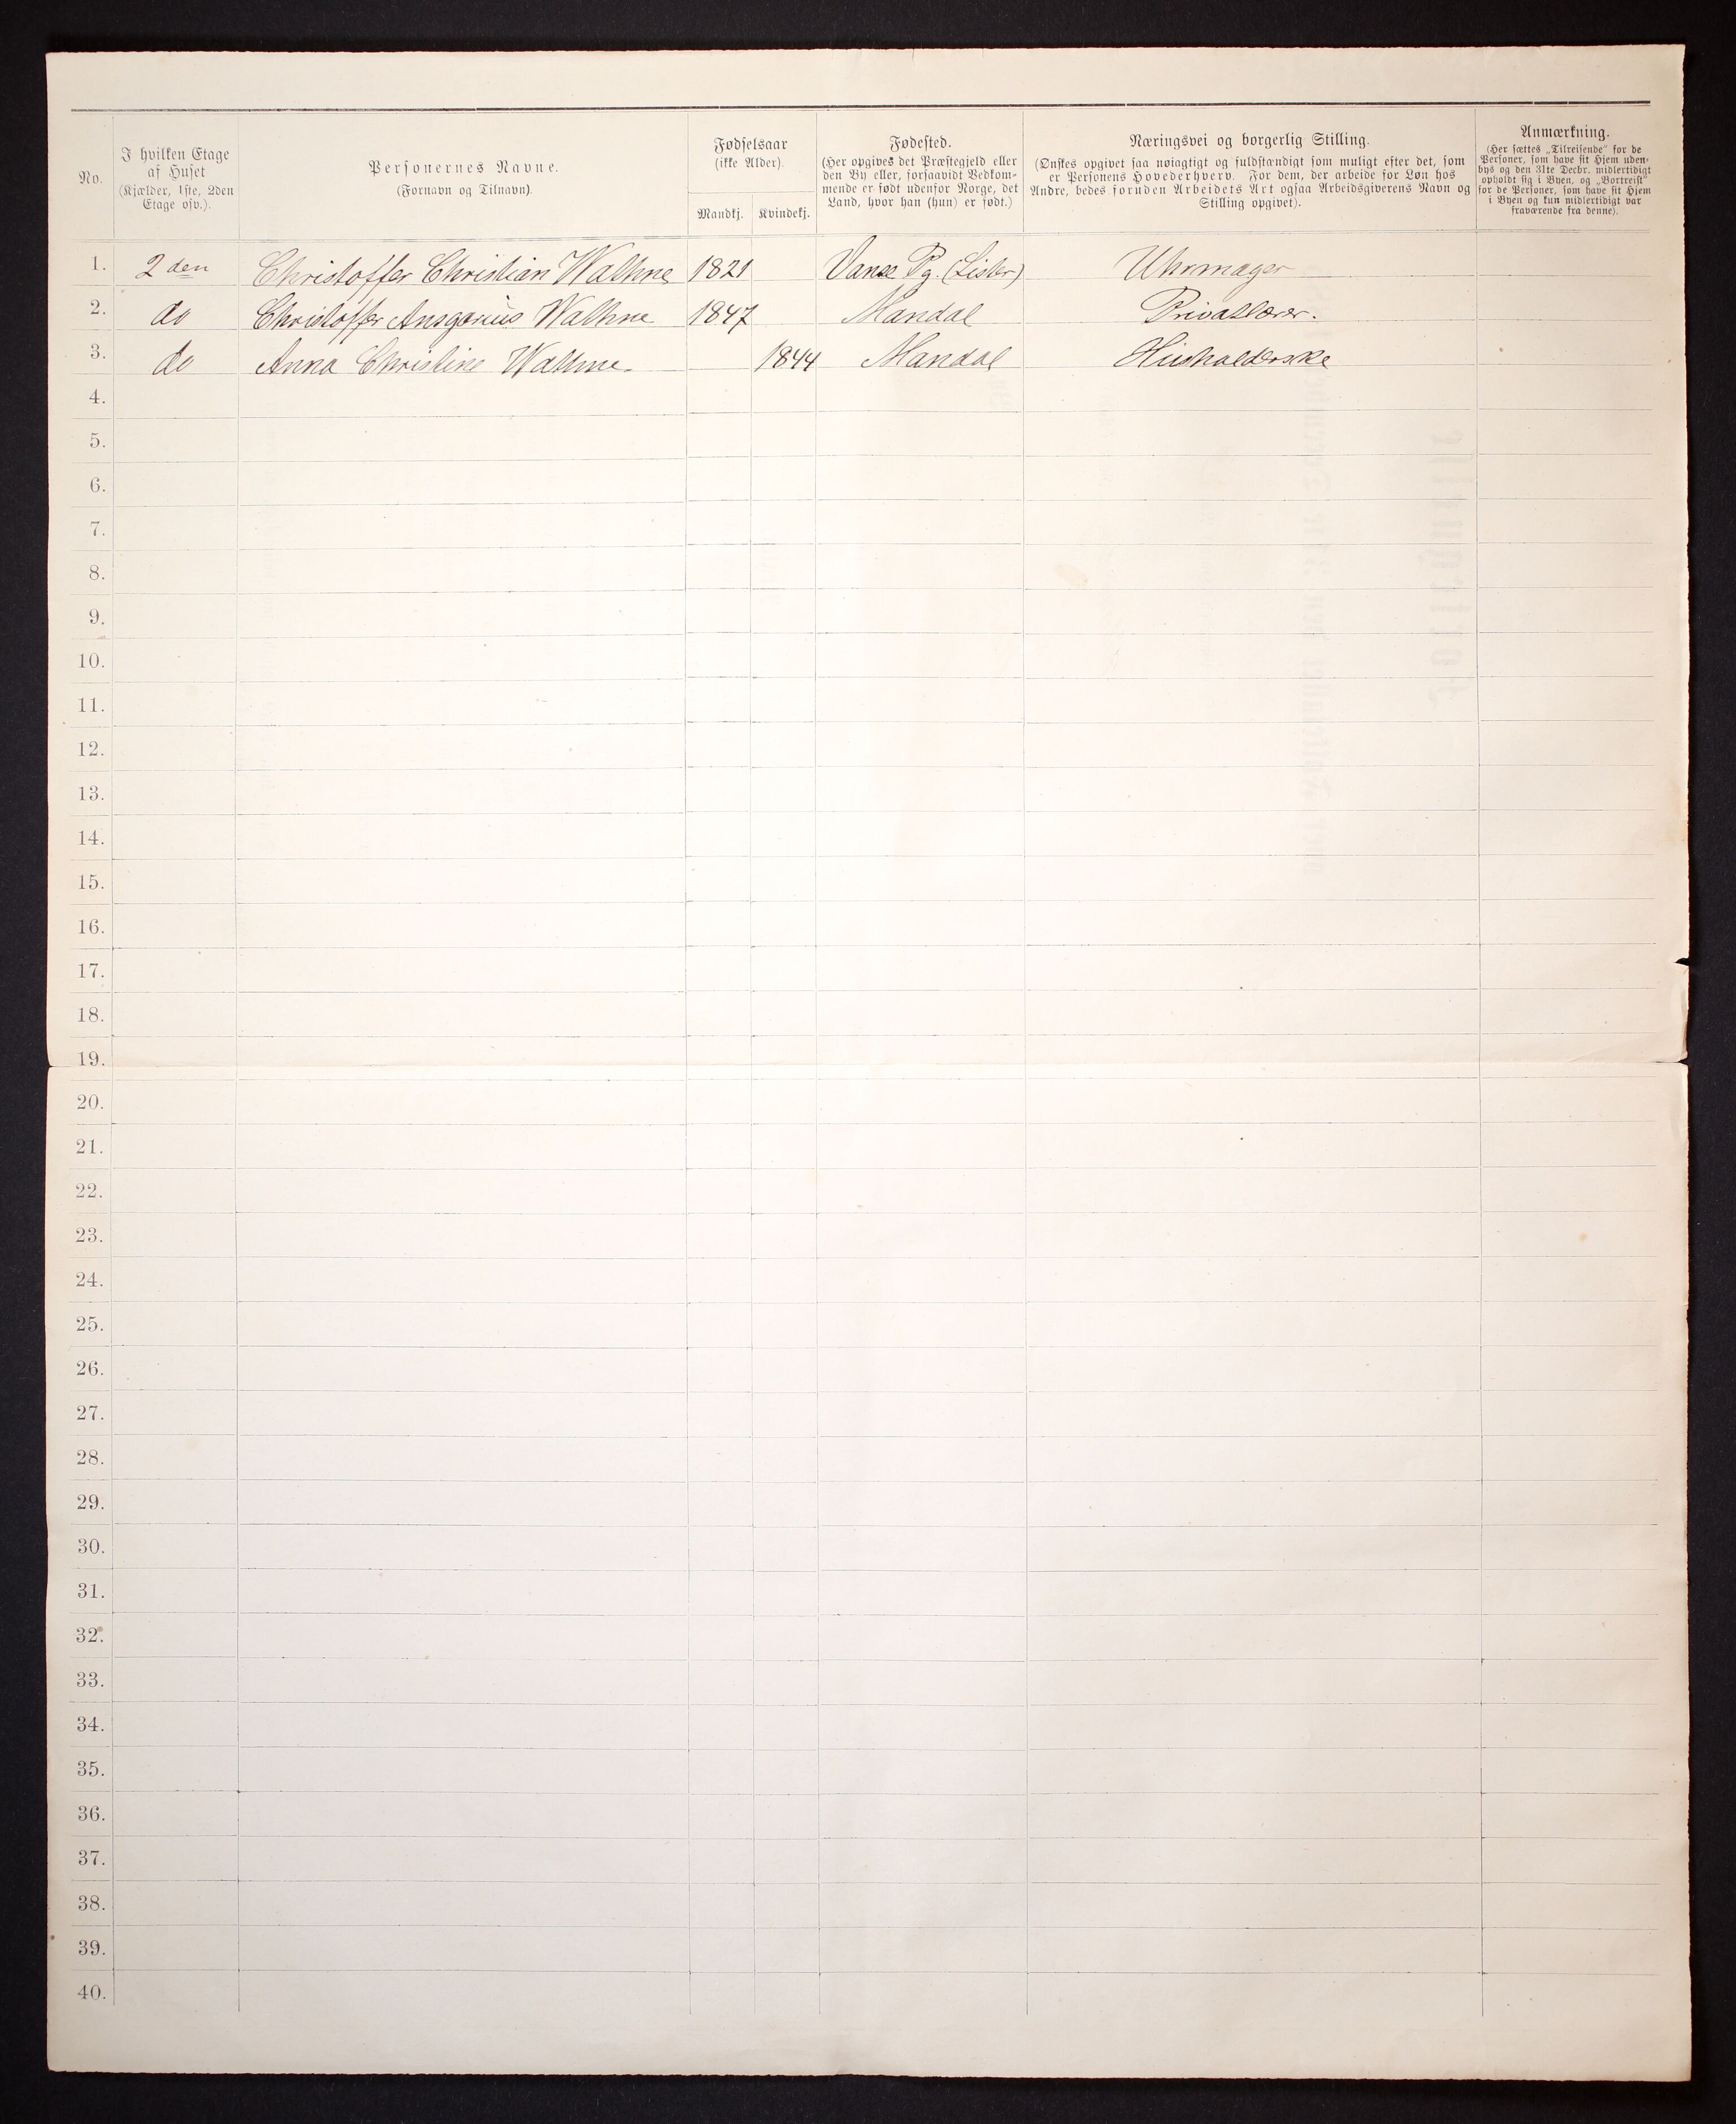 No.
I hvilken Etage
af Huset
(Kjælder, 1ste, 2den
Etage osv.).
Personernes Navne.
(Fornavn og Tilnavn).
Fødselsaar
(ikke Alder).
Mandkj. Kvindekj.
Fødested.
(Her opgives det Præstegjeld eller
den By eller, forsaavidt Vedkom-
mende er født udenfor Norge, det
Land, hvor han (hun) er født.)
Næringsvei og borgerlig Stilling.
(Ønskes opgivet saa nøiagtigt og fuldstændigt som muligt efter det, som
er Personens Hovederhverv. For dem, der arbeide for Løn hos
Andre, bedes foruden Arbeidets Art ogsaa Arbeidsgiverens Navn og
Stilling opgivet).
Anmærkning.
(Her sættes „Tilreisende“ for de
Personer, som have sit Hjem uden-
bys og den 31te Decbr. midlertidigt
opholdt sig i Byen, og „Bortreist“
for de Personer, som have sit Hjem
i Byen og kun midlertidigt var
fraværende fra denne).
1. 2den Christoffer Christian Wathne 1821 Vanse Pg. (Lister) Uhrmager
2. do Christoffer Ansgarius Wathne 1847 Mandal Privatlærer.
3. do Anna Christine Wathne 1844 Mandal Husholderske
4.
5.
6.
7.
8.
9.
10.
11.
12.
13.
14.
15.
16.
17.
18.
19.
20.
21.
22.
23.
24.
25.
26.
27.
28.
29.
30.
31.
32.
33.
34.
35.
36.
37.
38.
39.
40.